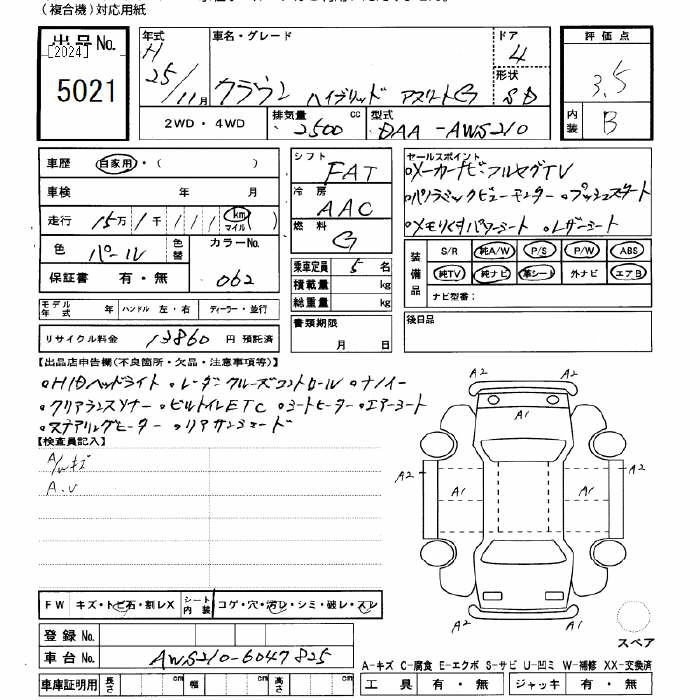 (複合機)対応用紙
出品No. [2024] 5021
年式 H 25/11月
車名・グレード クラウン ハイブリッド アスリートG
ドア 4
形状 SD
評価点 3.5
内装 B
2WD・4WD
排気量 2500 cc
型式 DAA-AWS210
車歴 自家用・( )
車検 年 月
走行 15万1千111 km マイル
色 パール 色替 カラーNo. 062
保証書 有・無
シフト FAT
冷房 AAC
燃料 G
乗車定員 5名
積載量 kg
総重量 kg
書類期限 月 日
セールスポイント
•メーカーナビ・フルセグTV
•パノラミックビューモニター •プッシュスタート
•メモリ付パワーシート •レザーシート
装備品 S/R 純A/W P/S P/W ABS
純TV 純ナビ 革シート 外ナビ エアB
ナビ型番:
モデル年式 年 ハンドル 左・右 ディーラー・並行
後日品
リサイクル料金 13860 円 預託済
【出品店申告欄(不良箇所・欠品・注意事項等)】
•HIDヘッドライト •レーダークルーズコントロール •ナノイー
•クリアランスソナー •ビルトインETC •シートヒーター •エアーシート
•ステアリングヒーター •リアサンシェード
【検査員記入】
A/Wキズ
A.U
A2 A2
A1
A2 A1 A1 A2
A2
FW キズ・トビ石・割レX シート内装 コゲ・穴・汚レ・シミ・破レ・スレ
登録No.
車台No. AWS210-6047825
スペア
A-キズ C-腐食 E-エクボ S-サビ U-凹ミ W-補修 XX-交換済
車庫証明用 長さ cm 幅 cm 高さ cm
工具 有・無 ジャッキ 有・無